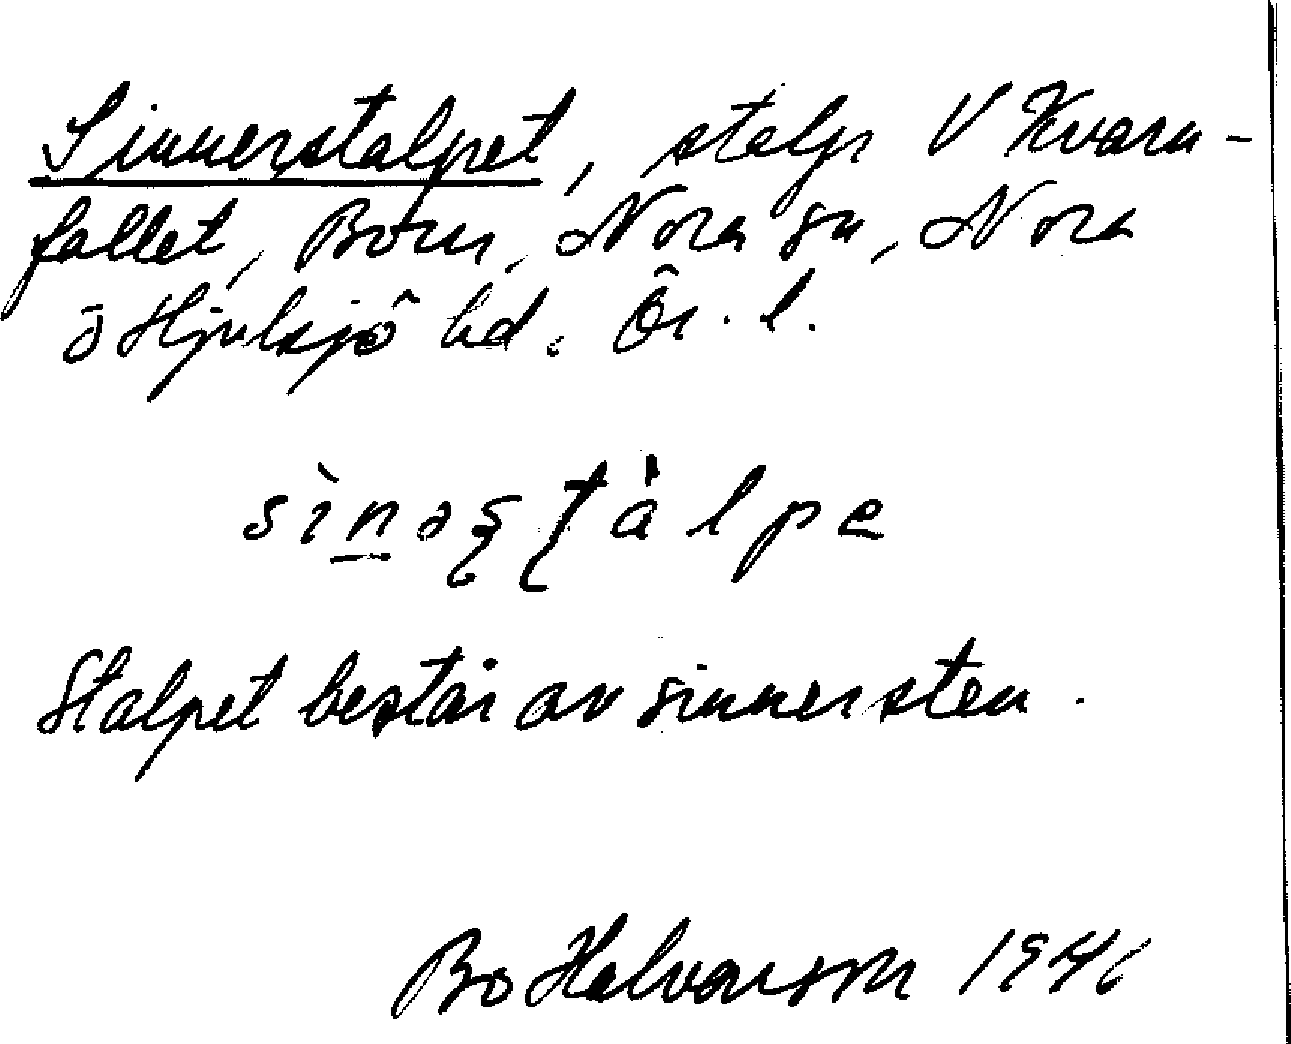 Sinnerstalpet, stalp V Kvarn-
fallet, Born, Nora sn, Nora
o Hjulsjö hd. Ör. l.
sìnəʂʈàlpe
Stalpet består av sinnersten.
Bo Halvarson 1946